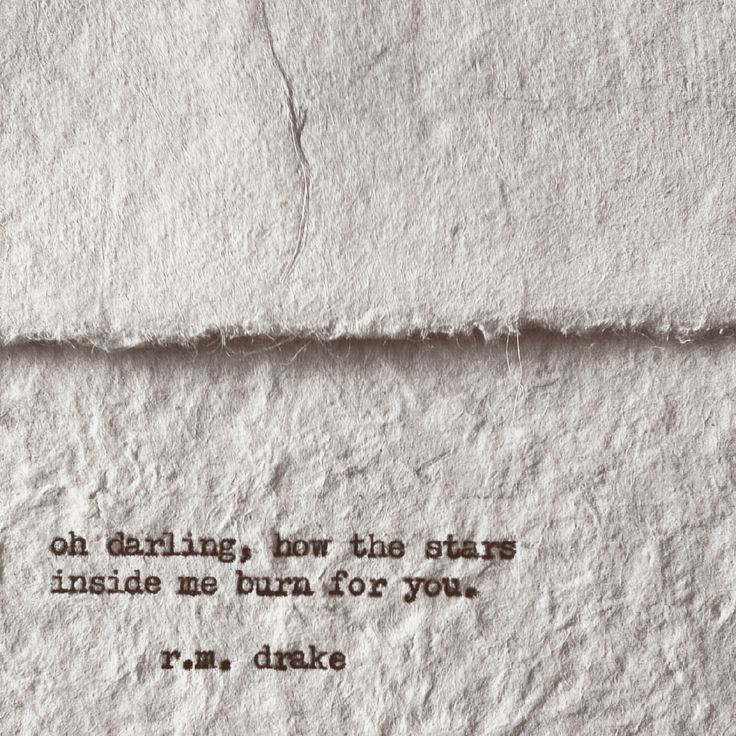 oh darling, how the stars
inside me burn for you.
r.m. drake